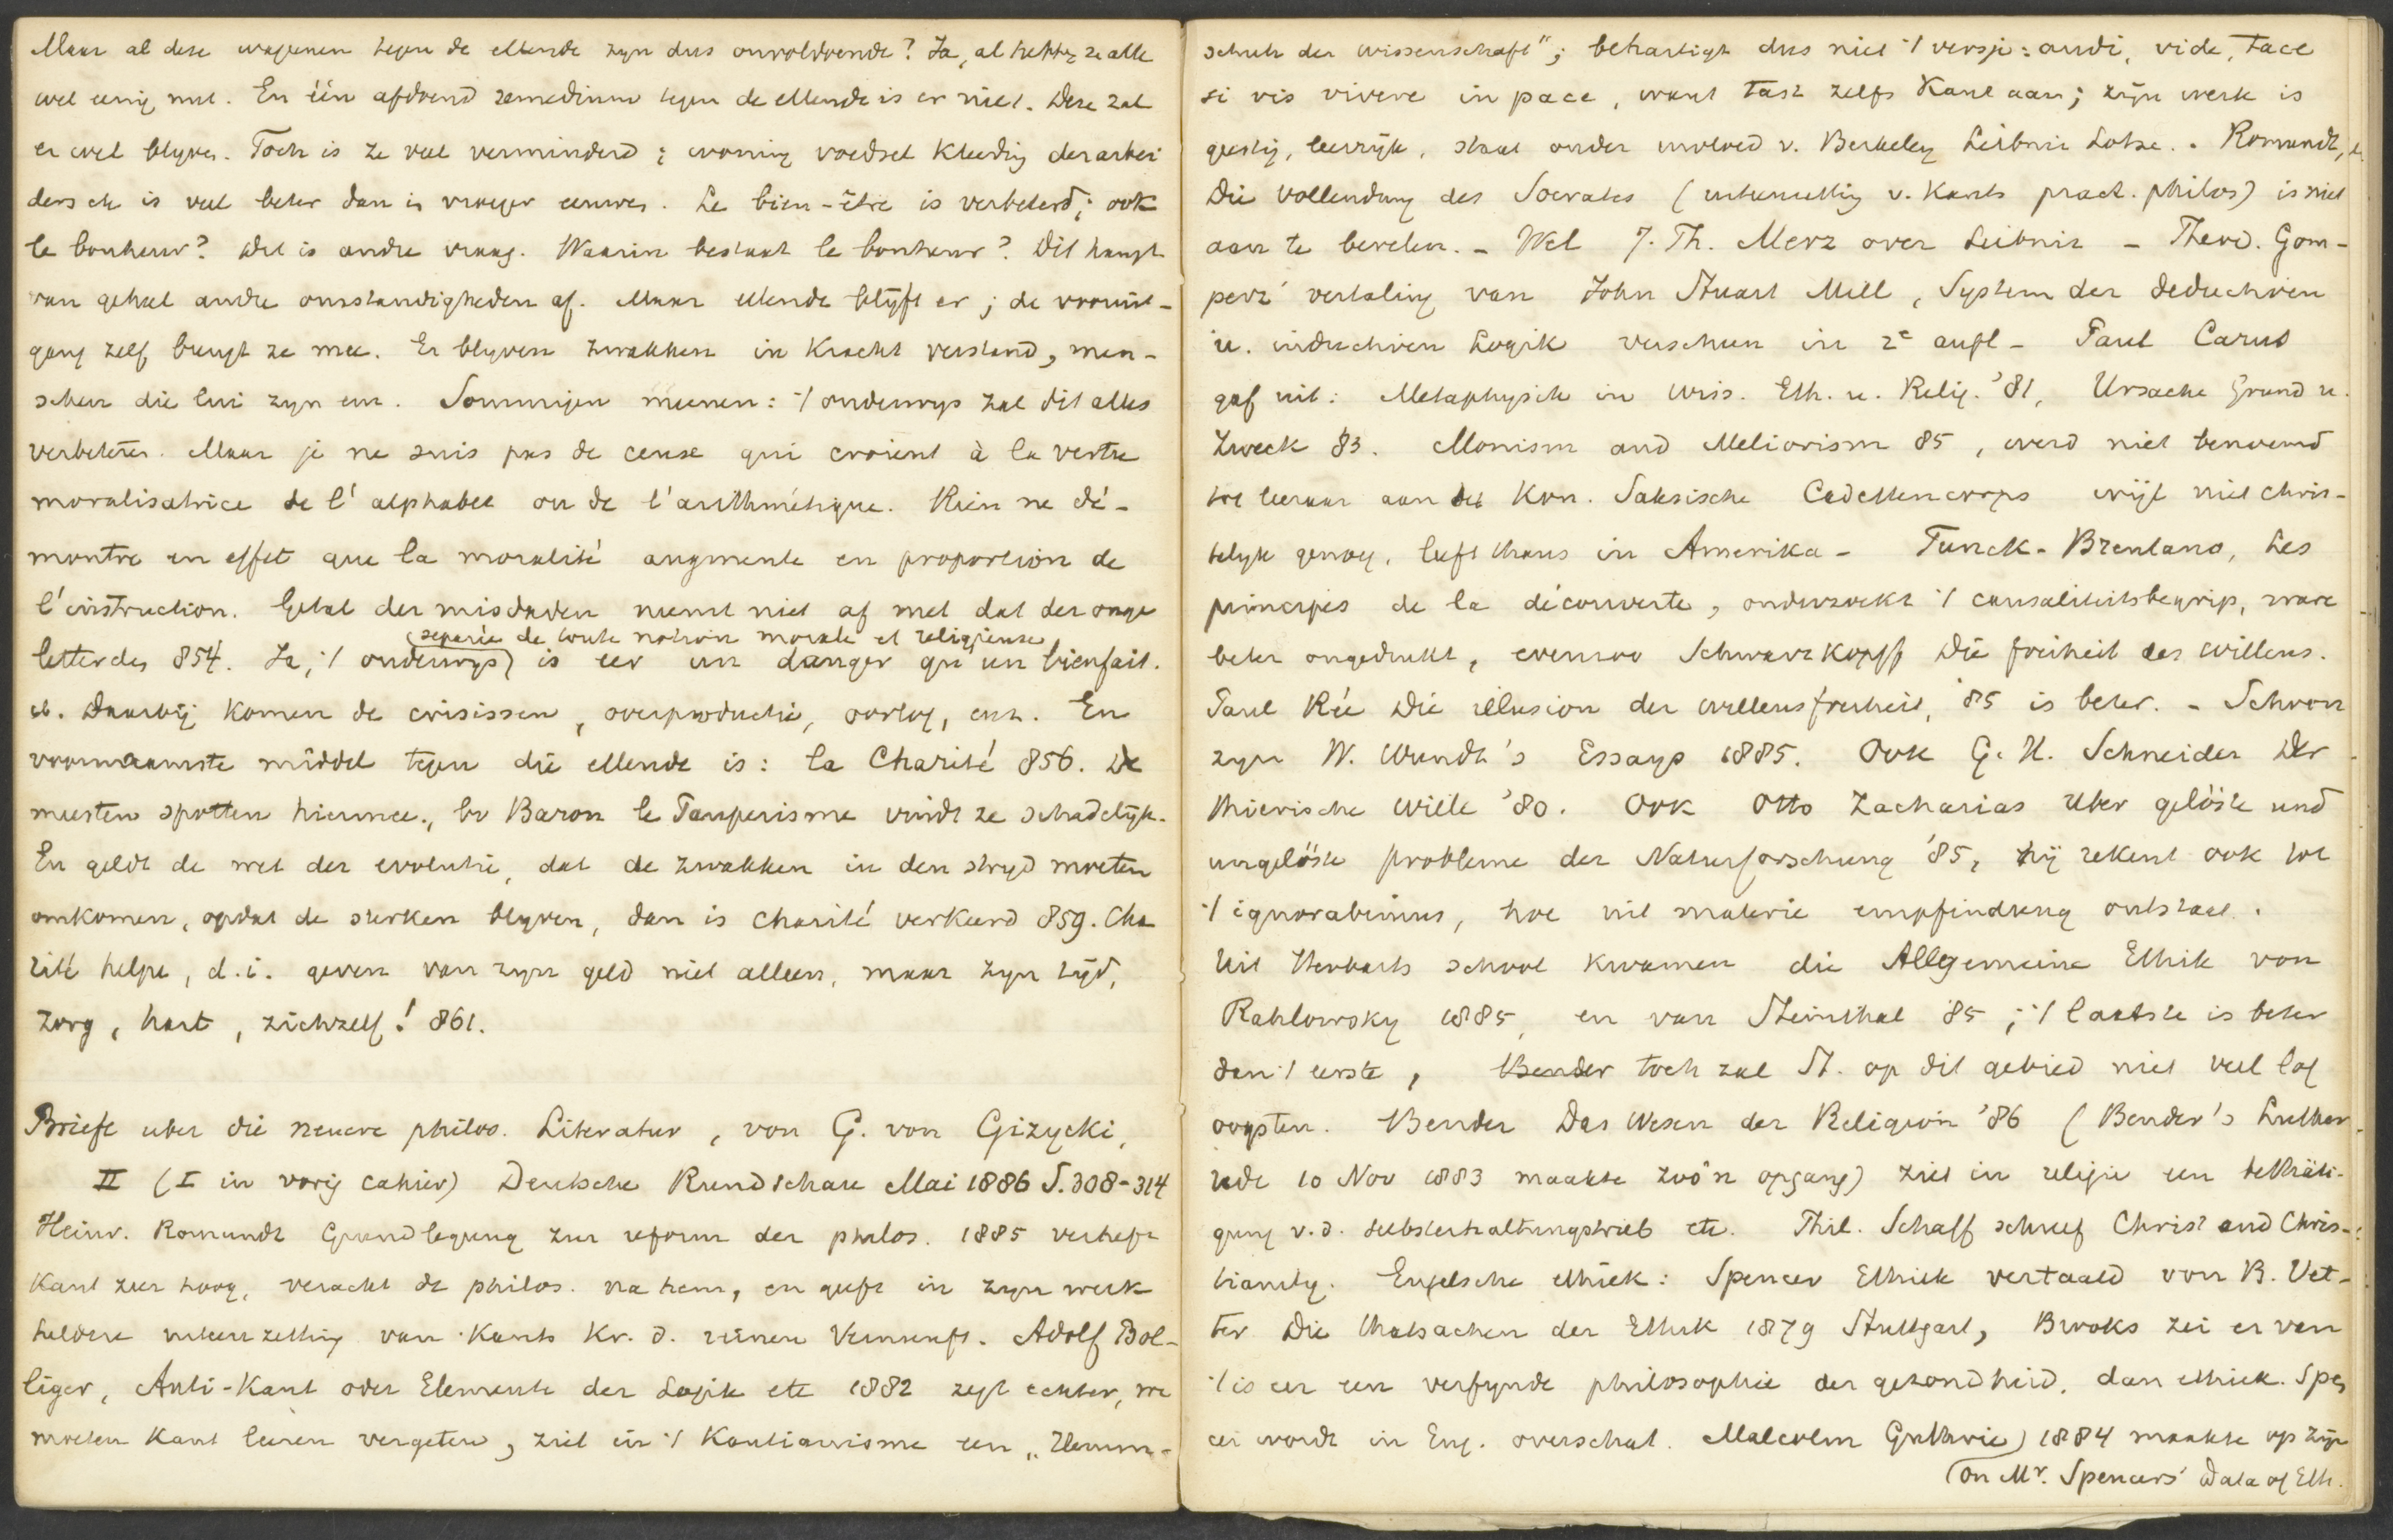 Maar al deze wapenen tegen de ellende zyn dus onvoldoende? Ja, al hebben ze alle
wel eenig nut. En één afdoend remedium tegen de ellende is er niet. Deze zal
er wel blyven. Toch is ze veel verminderd; woning voedsel kleeding der arbei
ders etc is veel beter dan in vroeger eeuwen. Le bien-être is verbeterd; ook
le bonheur? Dit is andre vraag. Waarin bestaat le bonheur? Dit hangt
van geheel andre omstandigheden af. Maar ellende blÿft er; de vooruit-
gang zelf brengt ze mee. Er blyven zwakken in kracht verstand, men-
schen die lui zyn enz. Sommigen meenen: 't onderwys zal dit alles
verbeteren. Maar je ne suis pas de ceux qui croient à la vertu
moralisatrice de l'alphabet ou de l'arithmétique. Rien ne dé-
montre en effet que la moralité augmente en proportion de
l'instruction. Getal der misdaden neemt niet af met dat der onge
letterdes 854. Ja, 't onderwys (separée de toute notion morale et religieuse) is eer un danger qu'un bienfait.
ib. Daarbÿ komen de crisissen, overproductie, oorlog, enz. En
voornaamste middel tegen die ellende is: la Charité 856. De
meesten spotten hiermee, bv Baron le Pauperisme vindt ze schadelÿk.
En geldt de wet der evolutie, dat de zwakken in den stryd moeten
omkomen, opdat de sterken blyven, dan is charité verkeerd 859. Cha
rité helpe, d.i. geven van zyn geld niet alleen, maar zyn tÿd,
zorg, hart, zichzelf! 861.
Briefe uber die neuere philos. Literatur, von G. von Gizycki,
II (I in vorig cahier) Deutsche Rundschau Mai 1886 S. 308-314
Heinr. Romundt Grundlegung zur reform der philos. 1885 verheft
Kant zeer hoog, veracht de philos. na hem, en geeft in zyn werk
heldere uiteenzetting van Kants Kr. d. reinen Vernunft. Adolf Bol-
liger, Anti-Kant oder Elemente der Logik etc 1882 zegt echter, we
moeten Kant leeren vergeten, ziet in 't Kantianisme een „Hemm-
schuh der Wissenschaft"; behartigt dus niet 't versje: audi, vide, tace
si vis vivere in pace, want tast zelfs Kant aan; zÿn werk is
geestig, leerrÿk, staat onder invloed v. Berkeley Leibniz Lotze. - Romundt,
Die Vollendung des Socrates (uiteenzetting v. Kants pract. philos) is niet
aan te bevelen. - Wel J. Th. Merz over Leibniz - Theod. Gom-
perz' vertaling van John Stuart Mill, System der deductiven
u. inductiven Logik verscheen in 2e aufl - Paul Carus
gaf uit: Metaphysik in Wiss. Eth. u. Relig. '81, Ursache Grund u.
Zweck 83. Monism and Meliorism 85, werd niet benoemd
tot leeraar aan het Kon. Saksische Cadettencorps wÿl niet chris-
telyk genoeg, leeft thans in Amerika - Funck-Brentano, Les
principes de la découverte, onderzoekt 't causaliteitsbegrip, ware
beter ongedrukt, evenzoo Schwarzkopff Die freiheit des willens.
Paul Rée Die illusion der willensfreiheit, 85 is beter. - Schoon
zyn W. Wundt's Essays 1885. Ook G. H. Schneider Der
thierische wille '80. Ook Otto Zacharias Uber gelöste und
ungelöste probleme der Naturforschung '85, hÿ rekent ook tot
't ignorabimus, hoe uit materie empfindung ontstaat.
Uit Herbarts school kwamen die Allgemeine Ethik von
Nahlowsky 1885, en van Steinthal 85; 't laatste is beter
dan 't eerste, toch zal St. op dit gebied niet veel lof
oogsten. Bender Das Wesen der Religion '86 (Bender's Luther
rede 10 Nov 1883 maakte zoo'n opgang) ziet in religie een bethäti-
gung v.d. selbsterhaltungstrieb etc. Phil. Schaff schreef Christ and Chris-
tianity. Engelsche ethiek: Spencer Ethiek vertaald von B. Vet-
ter Die thatsachen der Ethik 1879 Stuttgart, Brooks zei er van
't is eer een verfynde philosophie der gezondheid, dan ethiek. Spen
cer wordt in Eng. overschat. Malcolm Guthrie) 1884 maakte op zÿn
(on Mr. Spencers' Data of Eth.